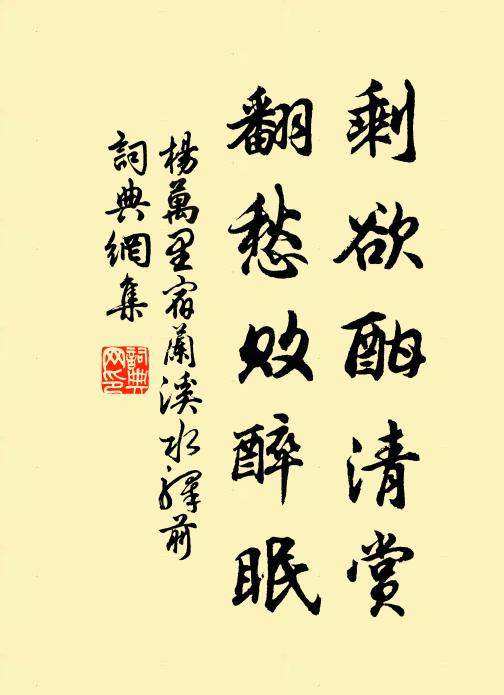 剩欲酣清賞
翻愁敗醉眠
楊萬里宿蘭溪水驛前
詞典網集
詞典
网印